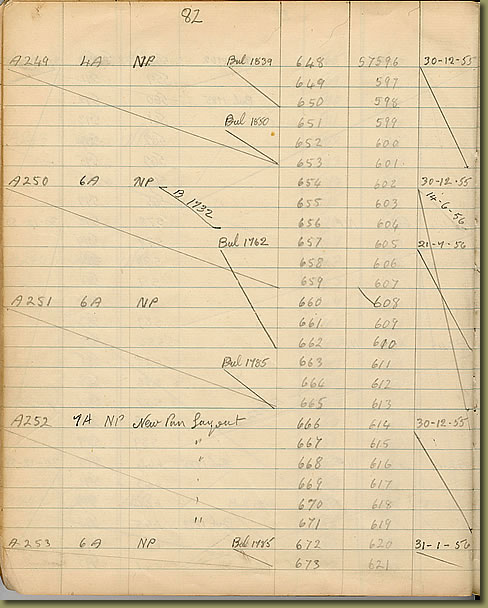 82
A249 4A NP Bul 1839 648 57596 30-12-55
649 597
650 598
Bul 1850 651 599
652 600
653 601
A250 6A NP 654 602 30-12-55
B 1732 655 603 14-6-56
656 604
Bul 1762 657 605 21-7-56
658 606
659 607
A251 6A NP 660 608
661 609
662 610
Bul 1785 663 611
664 612
665 613
A252 7A NP New Pan Layout 666 614 30-12-55
" 667 615
" 668 616
' 669 617
' 670 618
" 671 619
A253 6A NP Bul 1785 672 620 31-1-56
673 621